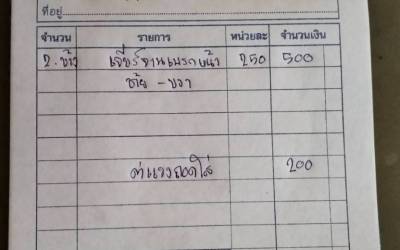 ที่อยู่
จำนวน รายการ หน่วยละ จำนวนเงิน
2. ข้าง เจียร์จานเบรกหน้า 250 500
ซ้าย - ขวา
ค่าแรงถอดใส่ 200